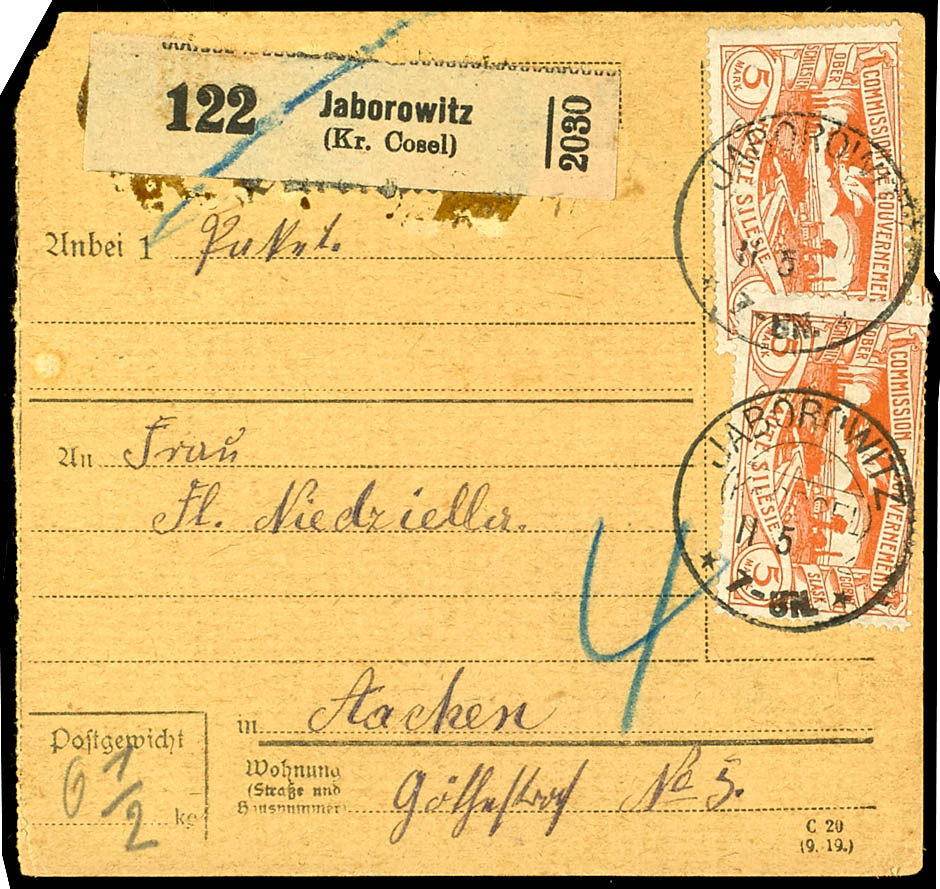 122 Jaborowitz
(Kr. Cosel)
2030
Anbei 1 Paket.
An Frau
Fl. Niedzieller.
4
in Aachen
Postgewicht
6 1/2 kg
Wohnung
(Straße und
Hausnummer)
Göthestraß No 5.
C 20
(9. 19.)
5
MARK
OBER
SCHLESIEN
COMMISSION DE GOUVERNEMENT
HAUTE SILESIE
JABOROWITZ
11 5
7-8N.
5
MARK
OBER
SCHLESIEN
COMMISSION DE GOUVERNEMENT
HAUTE SILESIE
5
GÓRNY
ŚLĄSK
JABOROWITZ
11 5
7-8N.